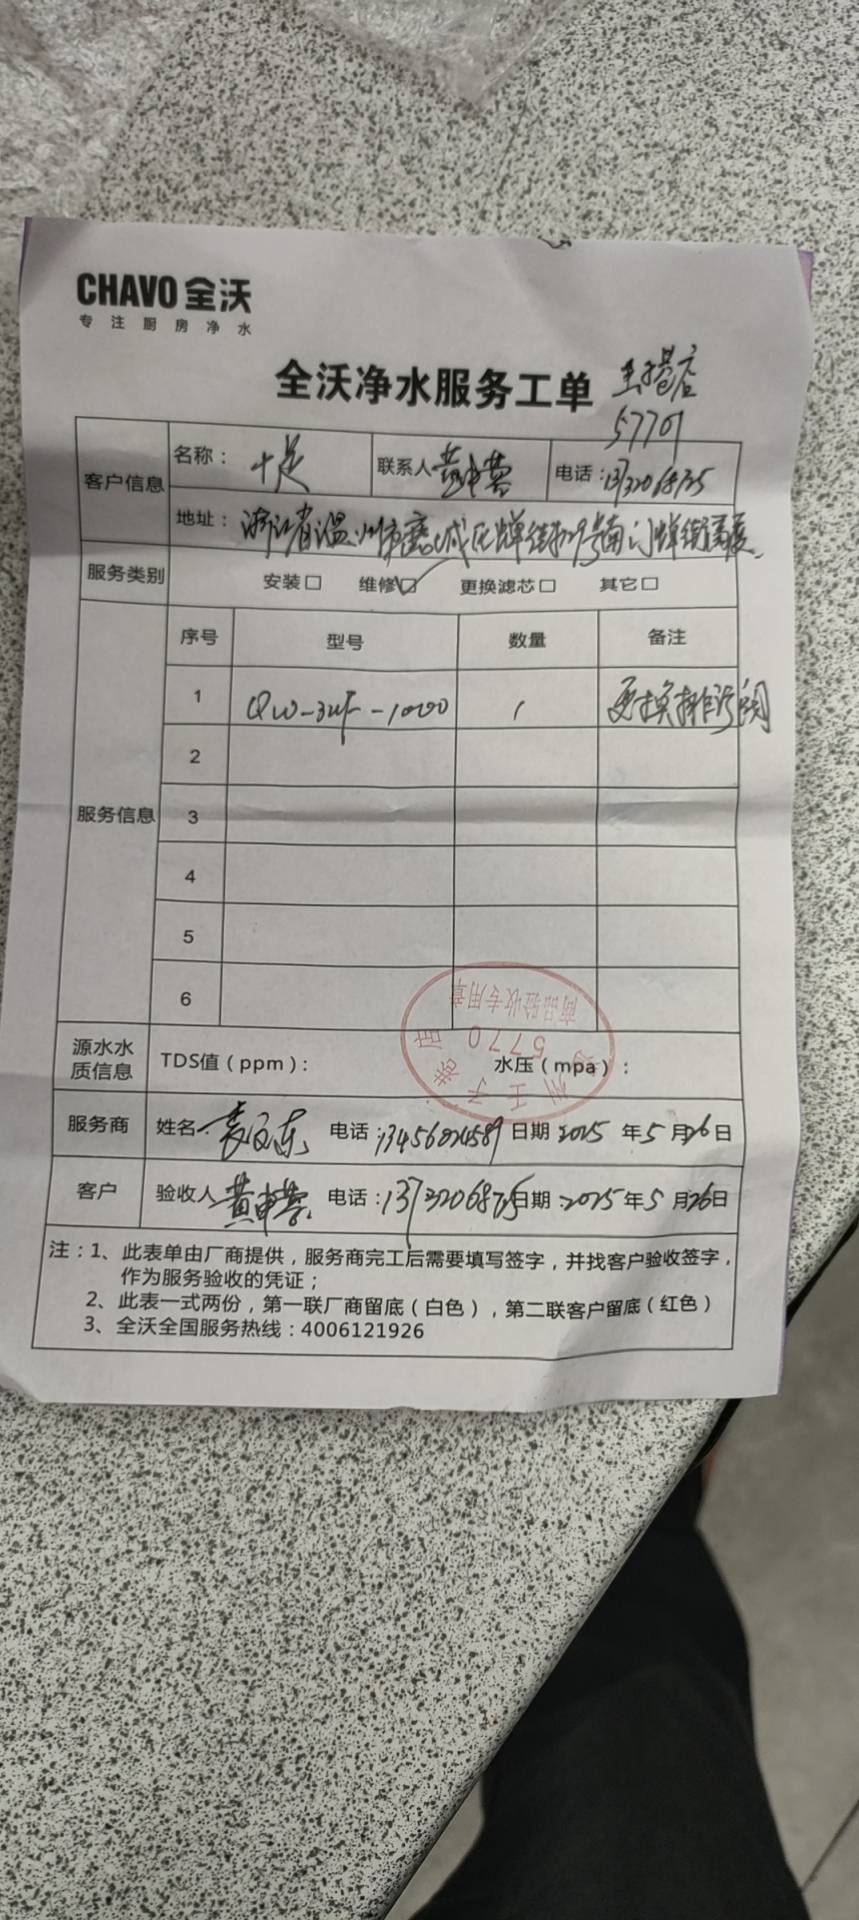 CHAVO 全沃
专注厨房净水
全沃净水服务工单
店
57701
客户信息
名称：十足 联系人 黄申 电话：
地址：浙江省温州市鹿城区蝉街 号南门蝉街
服务类别 安装□ 维修☑ 更换滤芯□ 其它□
服务信息
序号 型号 数量 备注
1 QW-3UF-1000 1 更换排污阀
2
3
4
5
6
源水水质信息 TDS值（ppm）： 水压（mpa）：
服务商 姓名： 东 电话： 日期：2025年5月26日
客户 验收人 黄申 电话：13732068725 日期：2025年5月26日
注：1、此表单由厂商提供，服务商完工后需要填写签字，并找客户验收签字，
作为服务验收的凭证；
2、此表一式两份，第一联厂商留底（白色），第二联客户留底（红色）
3、全沃全国服务热线：4006121926
州王子 店
5770
商品验收专用章